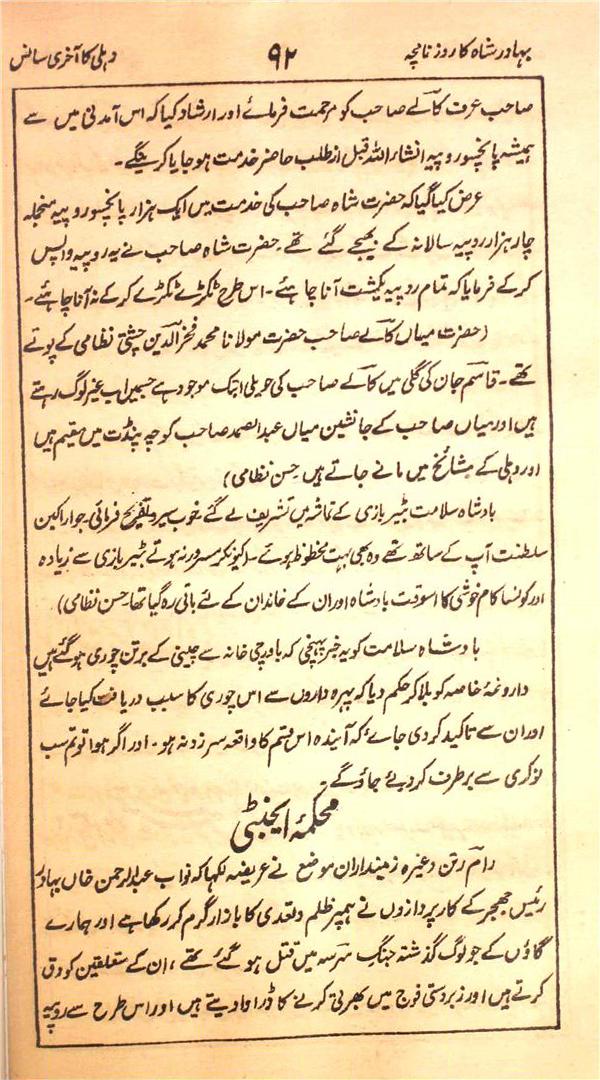 بہادر شاہ کا روزنامچہ ۹۲ دہلی کا آخری سانس
صاحب عرف کالے صاحب کو مرحمت فرمائے اور ارشاد کیا کہ اس آمدنی میں سے
ہمیشہ پانچسو روپیہ انشاء اللہ قبل از طلب حاضر خدمت ہو جایا کرینگے۔
عرض کیا گیا کہ حضرت شاہ صاحب کی خدمت میں ایک ہزار پانچسو روپیہ منجملہ
چار ہزار روپیہ سالانہ کے بھیجے گئے تھے۔ حضرت شاہ صاحب نے یہ روپیہ واپس
کر کے فرمایا کہ تمام روپیہ یکمشت آنا چاہئے۔ اس طرح ٹکڑے ٹکڑے کر کے نہ آنا چاہئے۔
(حضرت میاں کالے صاحب حضرت مولانا محمد فخر الدین چشتی نظامی کے پوتے
تھے۔ قاسم جان کی گلی میں کالے صاحب کی حویلی ابتک موجود ہے جسمیں اب غیر لوگ رہتے
ہیں اور میاں صاحب کے جانشین میاں عبد الصمد صاحب کوچہ پنڈت میں مقیم ہیں
اور دہلی کے مشائخ میں مانے جاتے ہیں۔ حسن نظامی)
بادشاہ سلامت بٹیر بازی کے تماشہ میں تشریف لے گئے خوب سیر و تفریح فرمائی۔ جو اراکین
سلطنت آپ کے ساتھ تھے وہ بھی بہت محظوظ ہوئے۔ (کیونکر مسرور نہ ہوتے بٹیر بازی سے زیادہ
اور کونسا کام خوشی کا اسوقت بادشاہ اور ان کے خاندان کے لئے باقی رہ گیا تھا۔ حسن نظامی)
بادشاہ سلامت کو یہ خبر پہنچی کہ باورچی خانہ سے چینی کے برتن چوری ہو گئے ہیں
داروغۂ خاصہ کو بلا کر حکم دیا کہ پہرہ داروں سے اس چوری کا سبب دریافت کیا جائے
اور ان سے تاکید کر دی جائے کہ آیندہ اس قسم کا واقعہ سرزد نہ ہو۔ اور اگر ہوا تو تم سب
نوکری سے برطرف کر دیئے جاؤ گے۔
محکمۂ ایجنٹی
رام رتن وغیرہ زمینداران موضع نے عریضہ لکھا کہ نواب عبد الرحمن خاں بہادر
رئیس جھجر کے کارپردازوں نے ہمپر ظلم و تعدی کا بازار گرم کر رکھا ہے اور ہمارے
گاؤں کے جو لوگ گذشتہ جنگ سرسہ میں قتل ہو گئے تھے، ان کے متعلقین کو دق
کرتے ہیں اور زبردستی فوج میں بھرتی کرنے کا ڈراوا دیتے ہیں اور اس طرح سے روپیہ